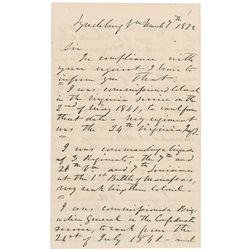 Lynchburg Va March 7th 1872
Sir
In compliance with
your request I have to
inform you that
I was commissioned Colonel
in the Virginia service on the
2nd of May 1861, to rank from
that date - My regiment
was the 24th Virginia
I was commanding a brigade
of 3 Regiments, the 7th and
24th Va and 7th Louisiana
at the 1st Battle of Manassas
my rank being then Colonel
I was commissioned Briga-
dier General in the Confederate
service, to rank from the
21st of July 1861 - and